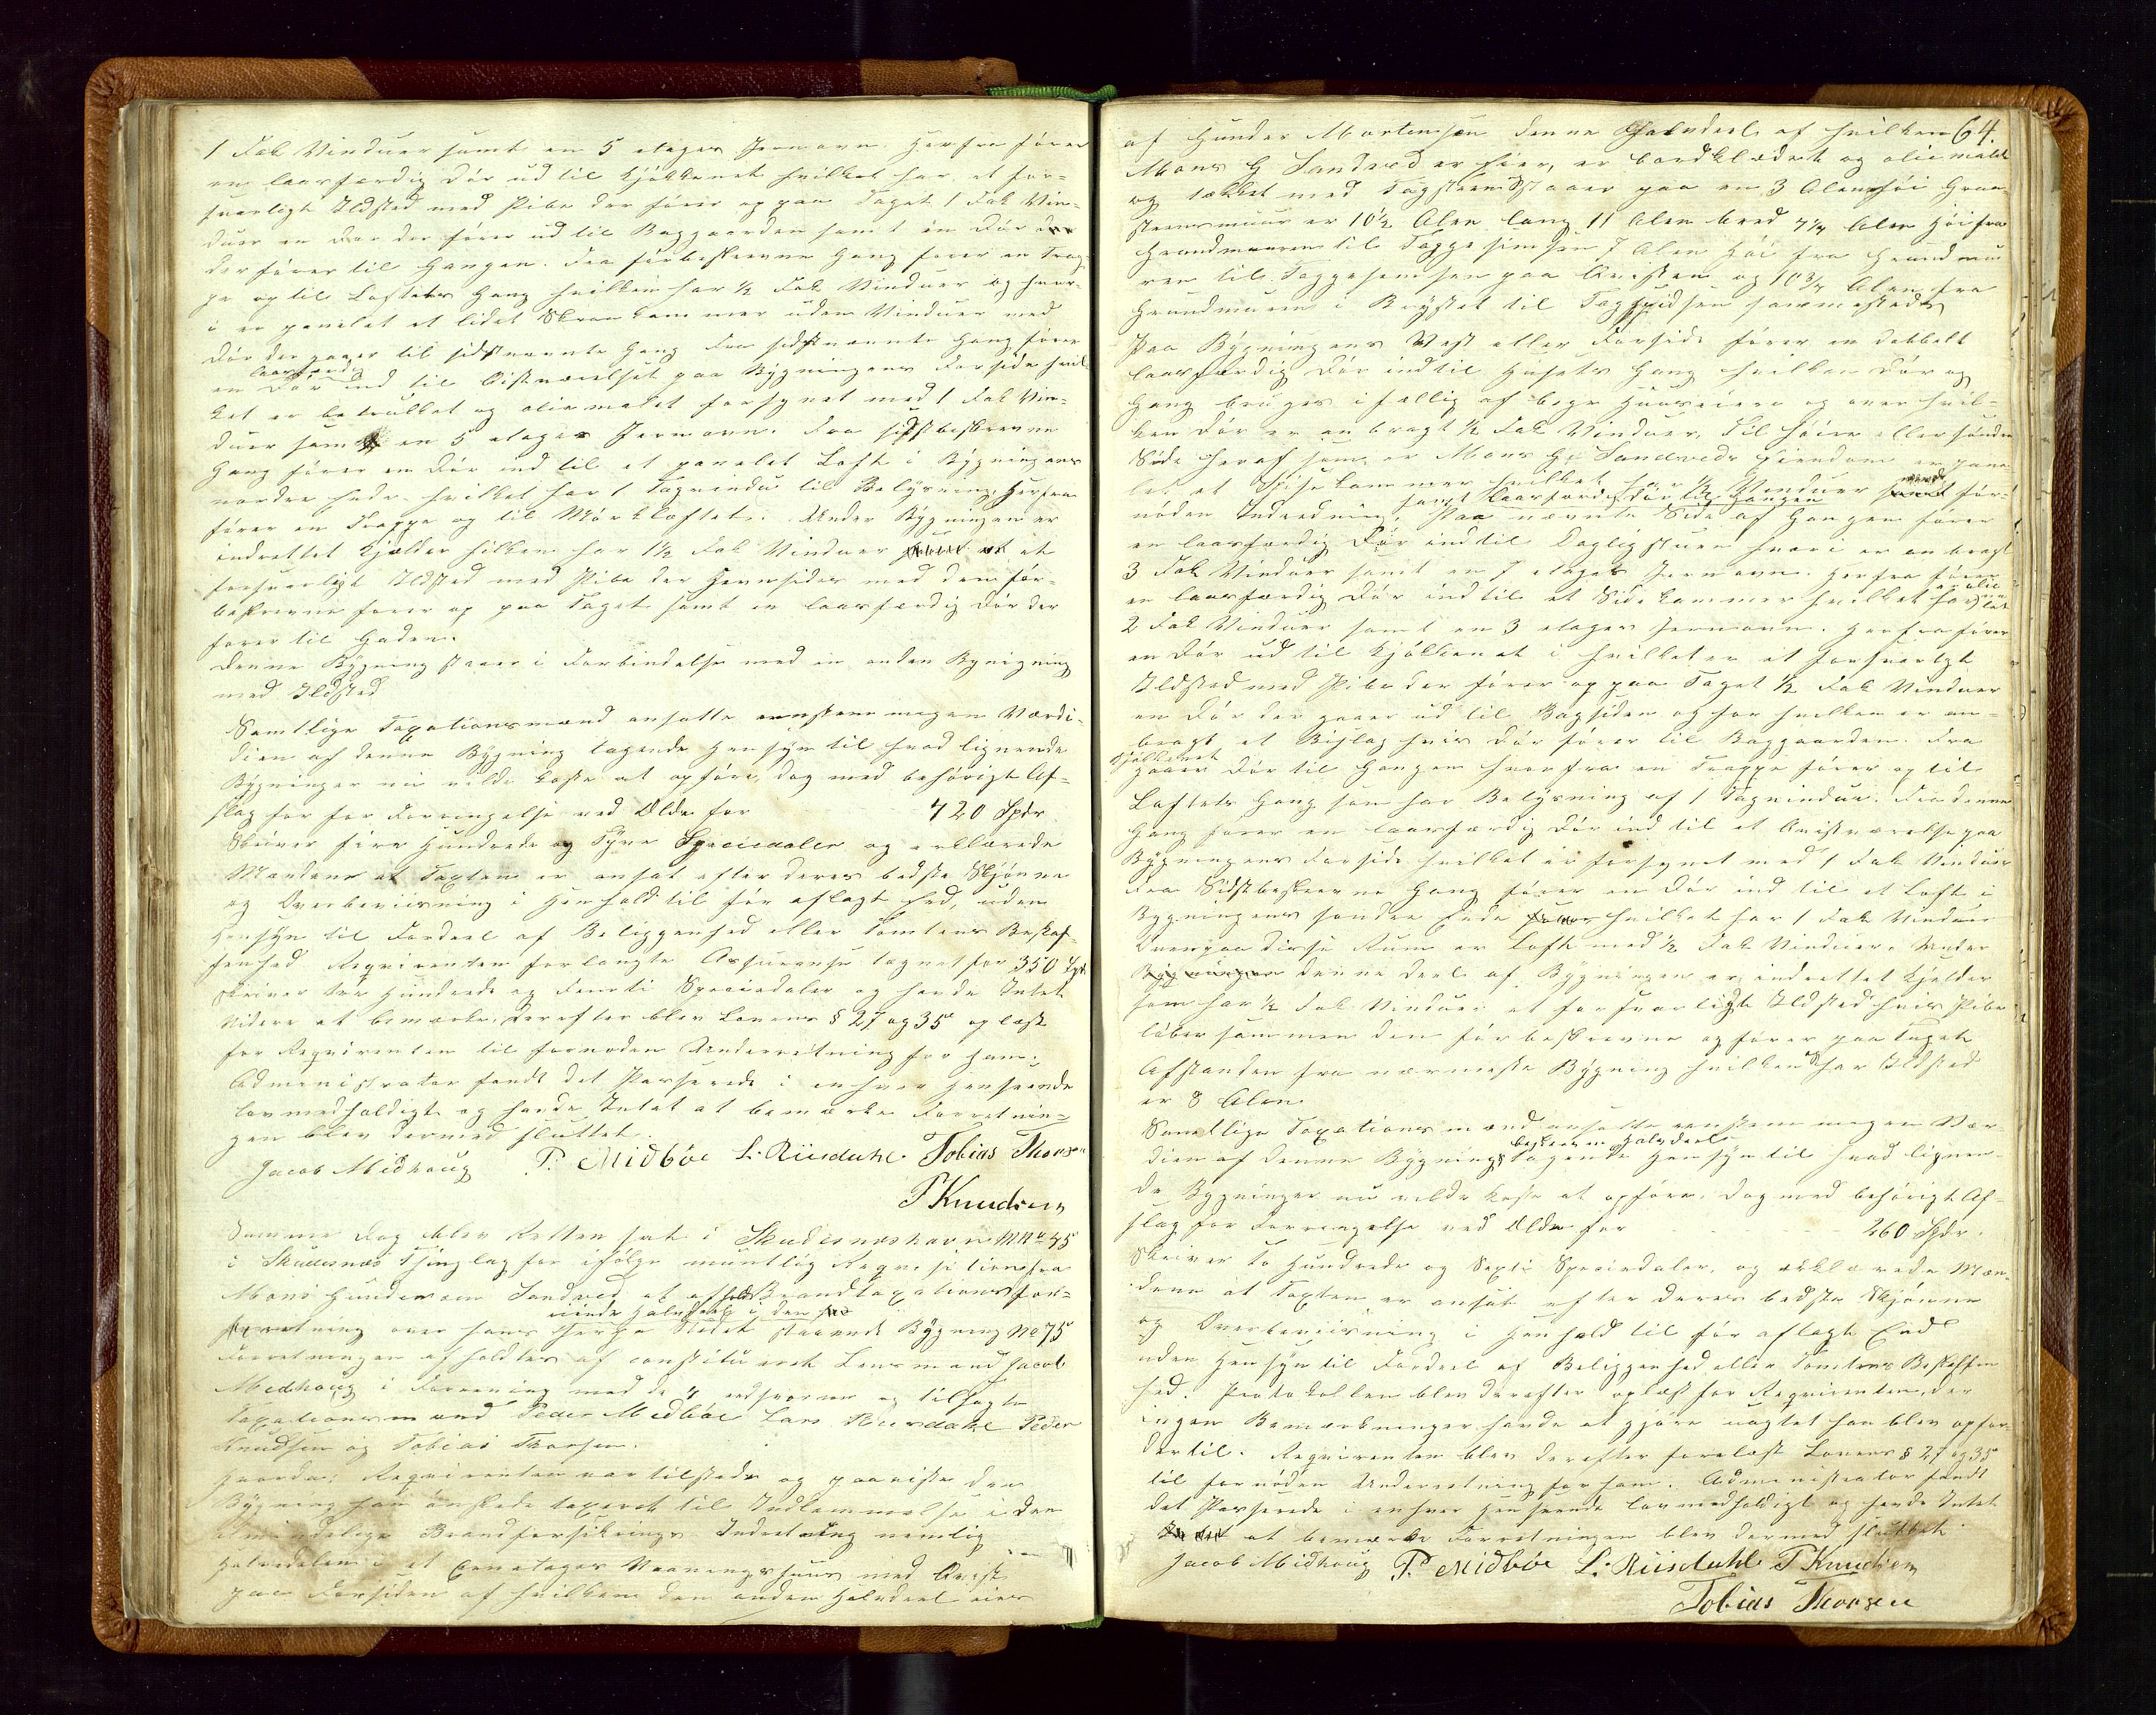 1 Fak Vinduer samt en 5 etages Jernovn. Herfra fører
en laasfærdig Dør ud til Kjøkkenet hvilket har et for-
svarligt Ildsted med Pibe der fører op paa Taget 1 Fak Vin-
duer en Dør der fører ud til Baggaarden samt en Dør
der fører til Gangen. Fra førbeskrevne Gang fører en Trap-
pe op til Loftets Gang hvilken har ½ Fak Vinduer og hvor-
i er panelet et lidet Skramkammer uden Vinduer med
Dør der gaaer til sidstnævnte Gang Fra sidstnævnte Gang fører
en laasfærdig Dør ind til Qvistværelset paa Bygningens Forside hvil-
ket er betrukket og oliemalet forsynet med 1 Fak Vin-
duer samt en 5 etages Jernovn. Fra sidstbeskrevne
Gang fører en Dør ind til et panelet Loft i Bygningens
nordre Ende hvilket har 1 Tagvindu til Belysning. Herfra
fører en Trappe op til Mørkloftet. Under Bygningen er
indrettet Kjælder hvilken har 1½ Fak Vinduer et
forsvarligt Ildsted med Pibe der ved med den før-
beskrevne fører op paa Taget samt en laasfærdig Dør der
fører til Gaden.
Denne Bygning staaer i Forbindelse med en anden Bygning
med Ildsted
Samtlige Taxationsmænd ansatte eenstemmigen Værdi-
dien af denne Bygning tagende Hensyn til hvad lignende
Bygninger nu vilde koste at opføre, dog med behørigt Af-
slag for Forringelse ved Ælde for 420 Spdr
Skriver fire Hundrede og Tyve Speciedaler og erklærede
Mændene at Taxten er ansat efter deres bedste Skjønne
og Overbeviisning i Henhold til før aflagt Eed, uden
Hensyn til Fordeel af Beliggenhed eller Tomtens Beskaf-
fenhed Reqvirenten forlangte Assurance tegnet for 350 Spd
skriver tre Hundrede og Femti Speciedaler og havde Intet
videre at bemærke. Derefter blev Lovens § 27 og 35 oplæst
for Reqvirenten til fornøden Underretning for ham.
Administrator fandt det Passerede i enhver Henseende
lovmedholdigt og havde Intet at bemærke Forretnin-
gen blev dermed sluttet.
Jacob Midhaug P. Midbøe L. Riisdahl Tobias Thorsen
P Knudsen
Samme Dag blev Retten sat i Skudesnæshavn M No 45
i Skudesnæs Thinglag for ifølge mundtlig Reqvisition fra
Mons Gundersen Sandved at afholde Brandtaxationsfor-
retning over hans eiende Halvdeel i den her paa Stedet staaende Bygning No 75
Forretningen afholdtes af constitueret Lensmand Jacob
Midhaug i Forening med de 4 edsvorne og tilsagte
Taxationsmænd Peder Midbøe Lars Riisdahl Peder
Knudsen og Tobias Thorsen.
Hvorda: Reqvirenten var tilstede og paaviste den
Bygning han ønskede taxeret til Indlemmelse i den
almindelige Brandforsikrings Indretning nemlig
Halvdelen i et Eenetages Vaaningshuus med Qvist
paa Forsiden af hvilken den anden Halvdeel eies
64.
af Gunder Mortensen denne Halvdeel af hvilken
Mons G Sandved er Eier, er bordklædet og oliemalt
og tækket med Tagsteen Staaer paa en 3 Alen høi Graa-
steensmuur er 10½ Alen lang 11 Alen bred 4¼ Alen høi fra
Grundmuren til Taggesimsen 7 Alen høi fra Grundmu-
ren til Taggesimsen paa Qvisten og 10¾ Alen fra
Grundmuren i Brystet til Tagspidsen sammesteds
Paa Bygningens Vest eller Forside fører en dobbelt
laasfærdig Dør ind til Husets Gang hvilken Dør og
Gang bruges i fællig af begge Huuseiere og over hvil-
ken Dør er anbragt ½ Fak Vinduer. Til høire eller søndre
Side heraf som er Mons G. Sandveds Eiendom er pane-
let et Spisekammer hvilket har ½ Vinduer med for-
nøden Indredning, samt laasfærdig Dør til Gangen Paa nævnte Side af Gangen fører
en laasfærdig Dør ind til Dagligstuen hvori er anbragt
3 Fak Vinduer samt en 7 etages Jernovn. Herfra fører
en laasfærdig Dør ind til et Sidekammer hvilket har
2 Fak Vinduer samt en 3 etages Jernovn. Herfra fører
en Dør ud til Kjøkkenet i hvilket er et forsvarligt
Ildsted med Pibe der fører op paa Taget ½ Fak Vinduer
en Dør der gaaer ud til Bagsiden og for hvilken er an-
bragt et Bislag hvis Dør fører til Baggaarden. Fra
Kjøkkenet gaaer Dør til Gangen hvorfra en Trappe fører op til
Loftets Gang som har Belysning af 1 Tagvindue. Fra denne
Gang fører en laasfærdig Dør ind til et Qvistværelse paa
Bygningens Forside hvilket er forsynet med 1 Fak Vinduer
Fra Sidstbeskrevne Gang fører en Dør ind til et Loft i
Bygningens søndre Ende hvilket har 1 Fak Vinduer
Ovenpaa disse Rum er Loft med ½ Fak Vinduer. Under
Bygningen denne Deel af Bygningen er indrettet Kjelder
som har ½ Fak Vinduer et forsvarligt Ildsted hvis Pibe
løber sammen den førbeskrevne og fører paa Taget
Afstanden fra nærmeste Bygning hvilken har Ildsted
er 8 Alen.
Samtlige Taxationsmænd ansatte eenstemmigen Vær-
dien af denne Bygnings beskrevne Halvdeel tagende Hensyn til hvad lignen-
de Bygninger nu vilde koste at opføre, dog med behørigt Af-
slag for Forringelse ved Ælde for 260 Spdr.
Skriver To Hundrede og Sexti Speciedaler, og erklærede Mæn-
dene at Taxten er ansat efter deres bedste Skjønne
og Overbeviisning i Henhold til før aflagt Eed
uden Hensyn til Fordeel af Beliggenhed eller Tomtens Beskaffen
hed. Protokollen blev derefter oplæst for Reqvirenten, der
ingen Bemærkninger havde at gjøre uagtet han blev opfor-
dertil. Reqvirenten blev derefter forelæst Lovens § 27 og 35
til fornøden Underretning for ham. Administrator fandt
det Passerede i enhver Henseende lovmedholdigt og havde Intet
at bemærke Forretningen blev dermed sluttet.
Jacob Midhaug P. Midbøe L. Riisdahl P Knudsen
Tobias Thorsen